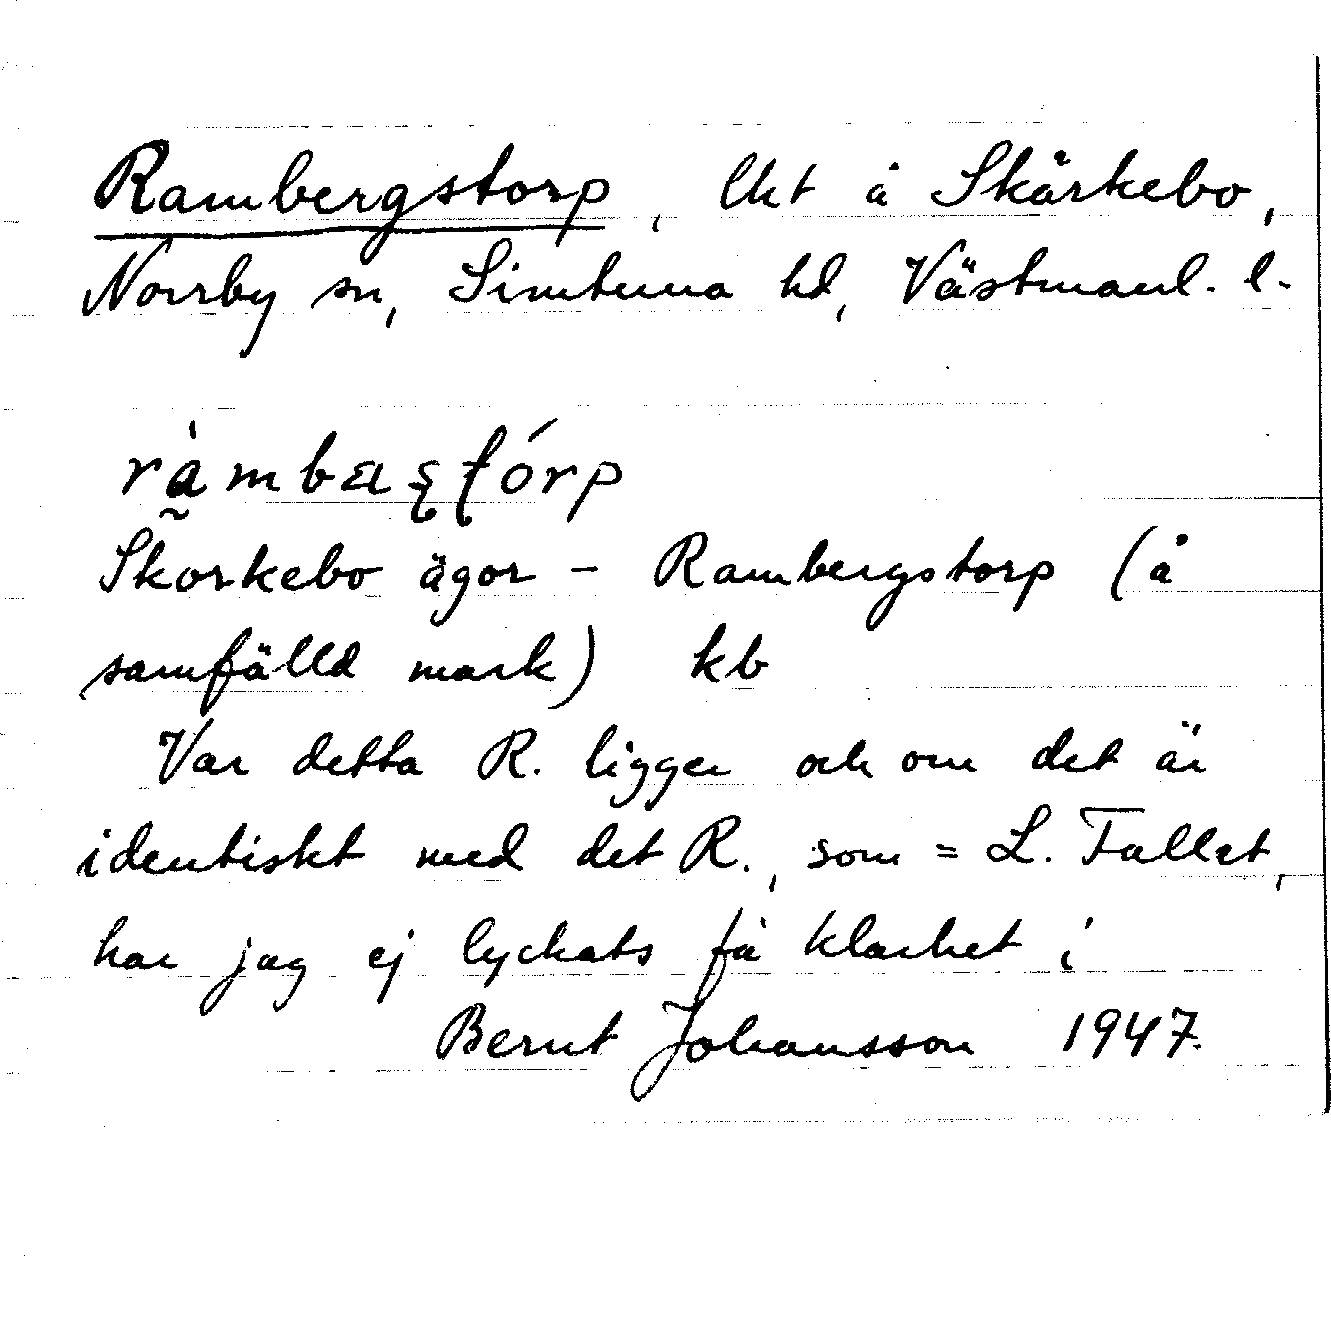 Rambergstorp, lht å Skårkebo,
Norrby sn, Simtuna hd, Västmanl. l.
Skorkebo ägor - Rambergstorp (å
samfälld mark) kb
Var detta R. ligger och om det är
identiskt med det R., som = L. Tallet,
har jag ej lyckats få klarhet i
Bernt Johansson 1947.